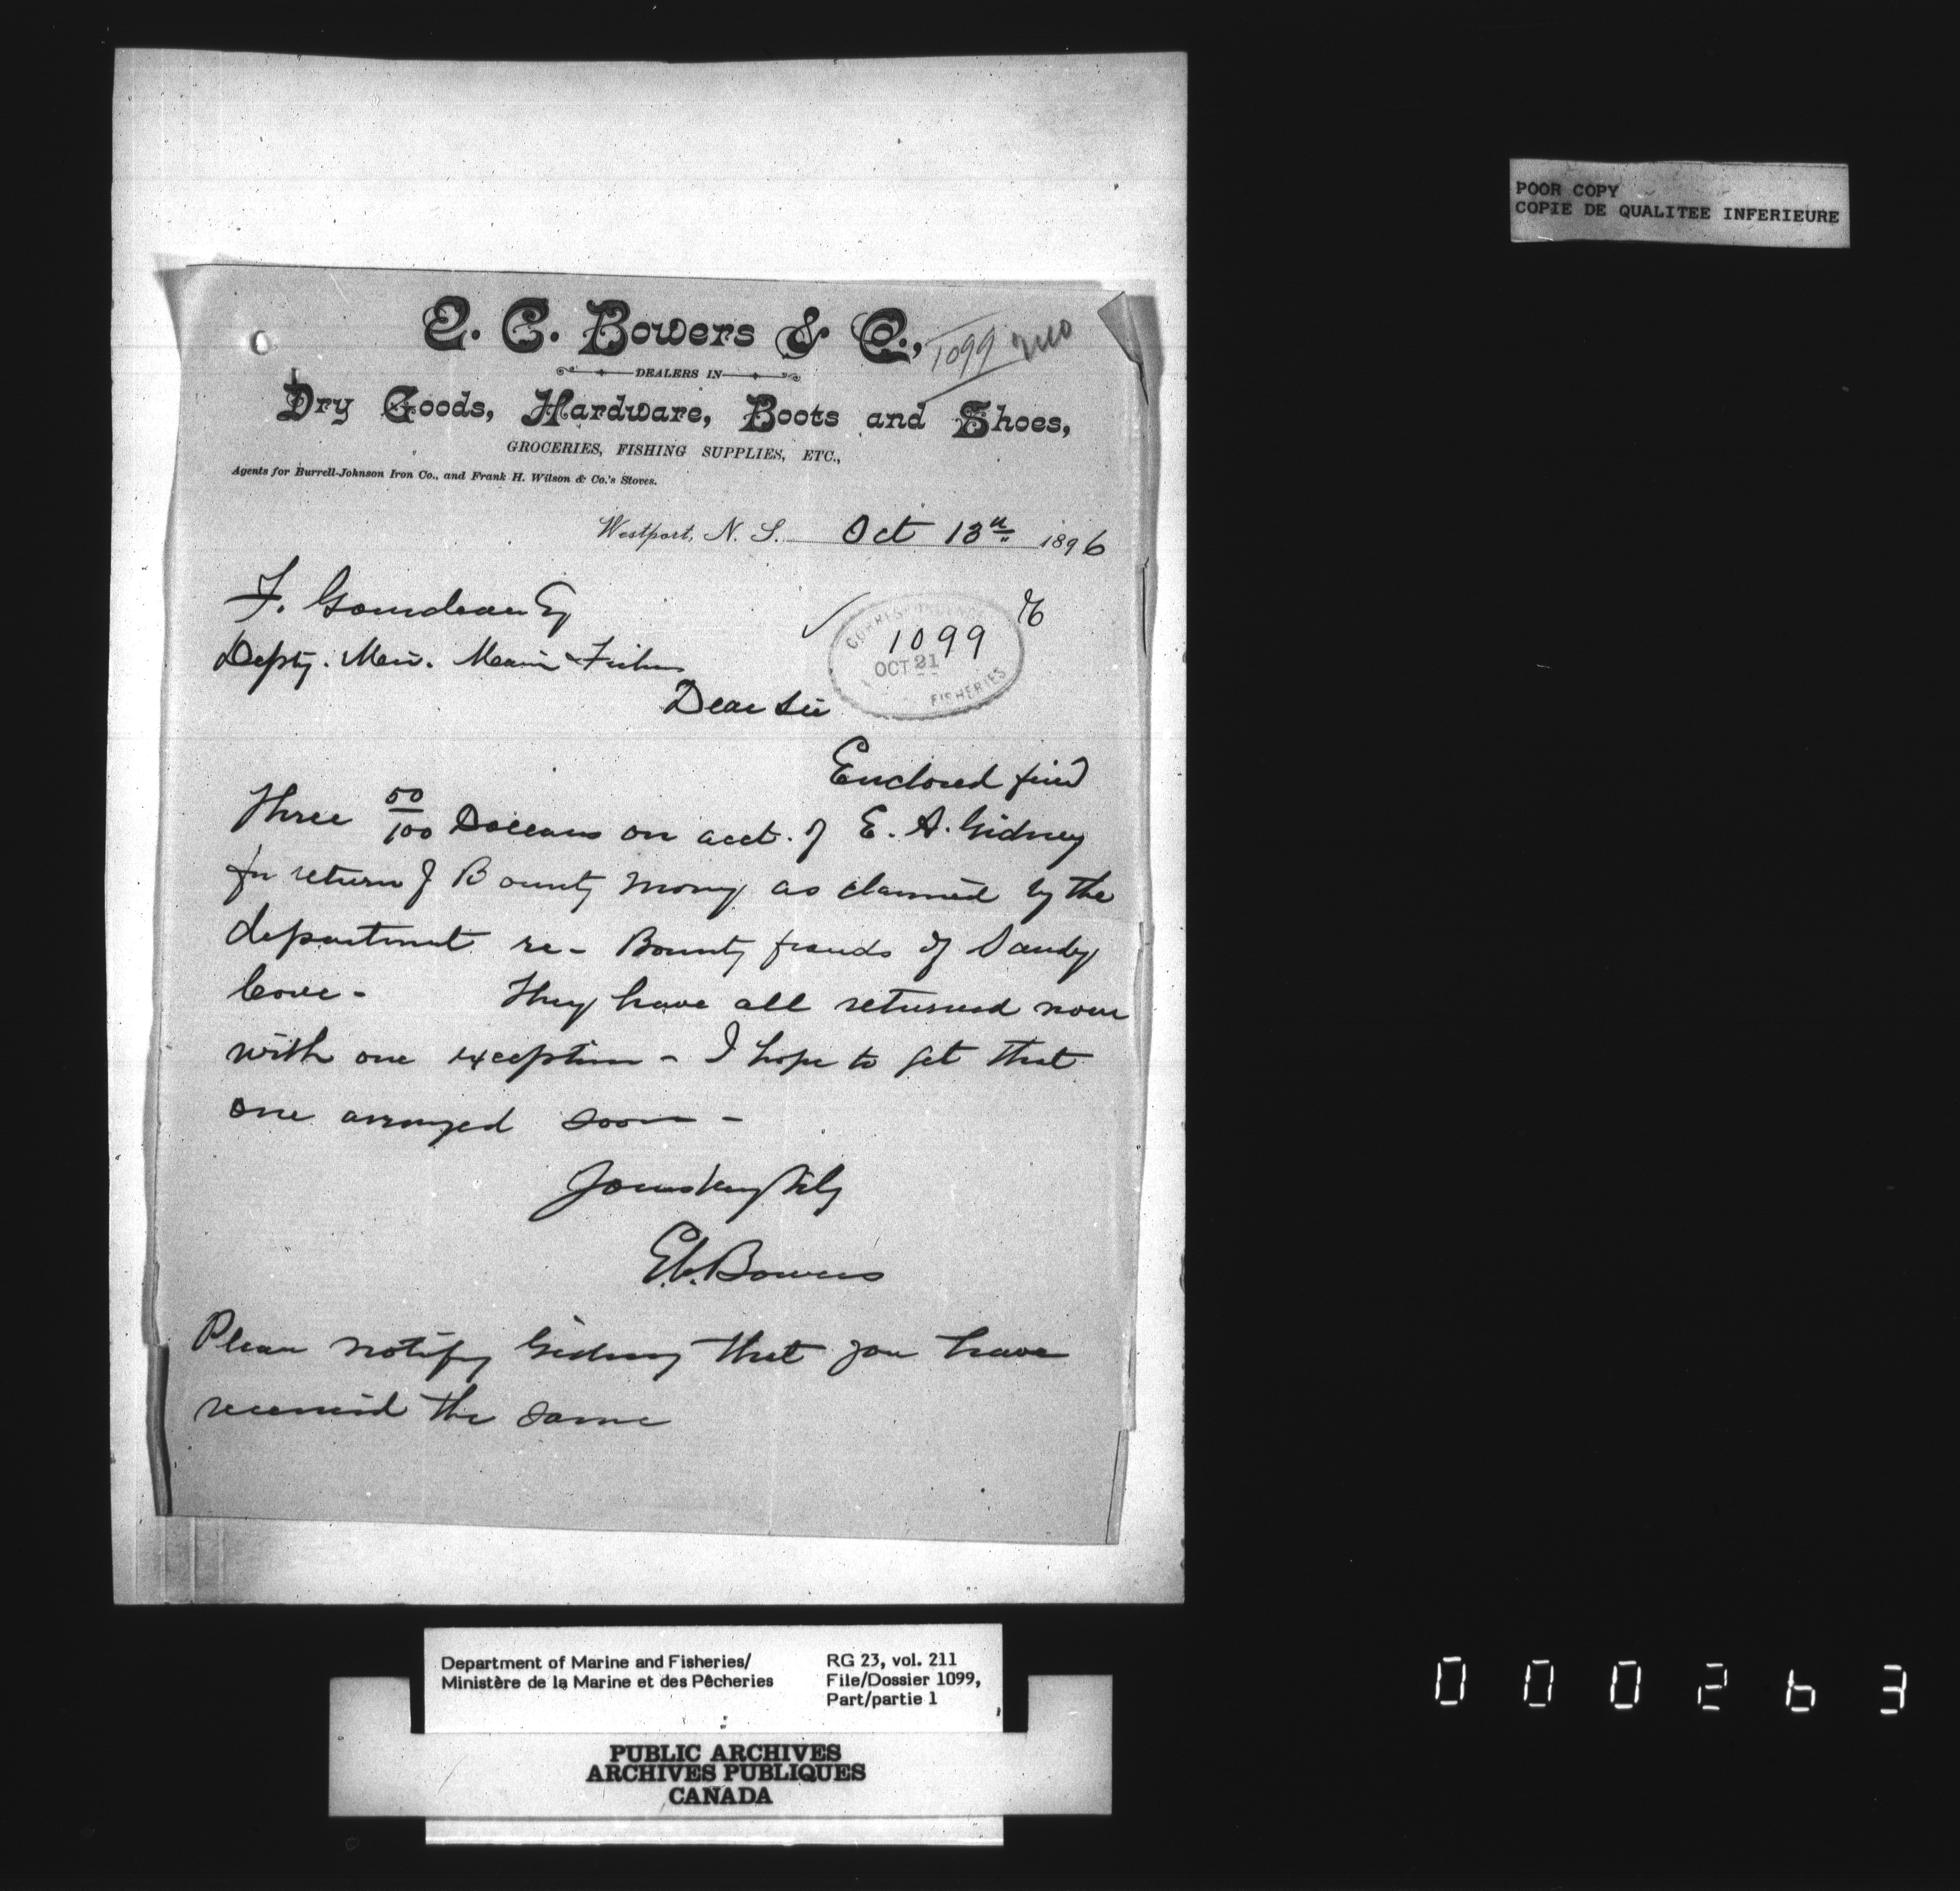 POOR COPY
COPIE DE QUALITEE INFERIEURE
E. C. Bowers & Co.,
1099
DEALERS IN
Dry Goods, Hardware, Boots and Shoes,
GROCERIES, FISHING SUPPLIES, ETC.,
Agents for Burrell-Johnson Iron Co., and Frank H. Wilson & Co.'s Stoves.
Westport, N. S. Oct 13th 1896
F. Gourdeau Esq
Depty. Min. Marin & Fisheries
1099
OCT 21
FISHERIES
Dear Sir
Enclosed find
Three 50/100 Dollars on acct. of E. A. Gidney
for return of Bounty Mony as claimed by the
department re- Bounty frauds of Sandy
Cove- They have all returned now
with one exception - I hope to get that
one arranged soon -
Yours very truly
E.C. Bowers
Please notify Gidney that you have
received the same
Department of Marine and Fisheries/
Ministère de la Marine et des Pêcheries
RG 23, vol. 211
File/Dossier 1099,
Part/partie 1
PUBLIC ARCHIVES
ARCHIVES PUBLIQUES
CANADA
000263